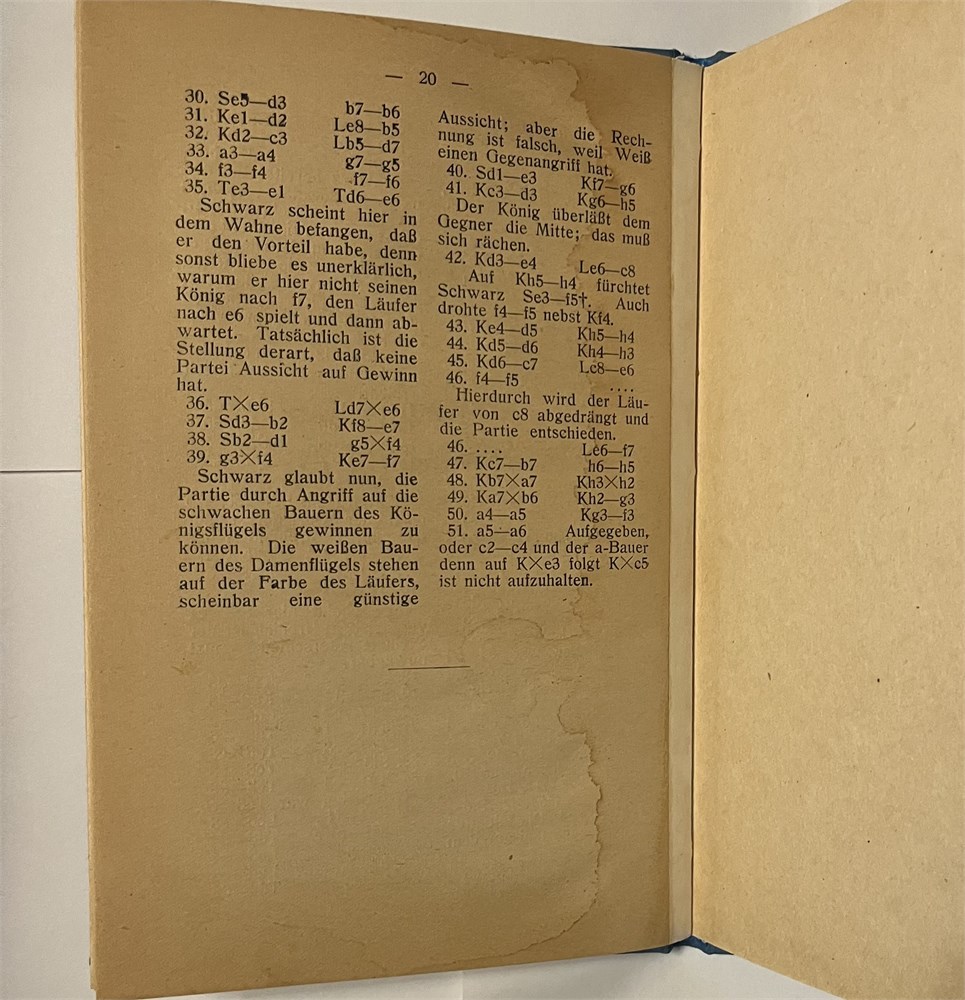 — 20 —
30. Se5—d3 b7—b6
31. Ke1—d2 Le8—b5
32. Kd2—c3 Lb5—d7
33. a3—a4 g7—g5
34. f3—f4 f7—f6
35. Te3—e1 Td6—e6
Schwarz scheint hier in
dem Wahne befangen, daß
er den Vorteil habe, denn
sonst bliebe es unerklärlich,
warum er hier nicht seinen
König nach f7, den Läufer
nach e6 spielt und dann ab-
wartet. Tatsächlich ist die
Stellung derart, daß keine
Partei Aussicht auf Gewinn
hat.
36. T×e6 Ld7×e6
37. Sd3—b2 Kf8—e7
38. Sb2—d1 g5×f4
39. g3×f4 Ke7—f7
Schwarz glaubt nun, die
Partie durch Angriff auf die
schwachen Bauern des Kö-
nigsflügels gewinnen zu
können. Die weißen Bau-
ern des Damenflügels stehen
auf der Farbe des Läufers,
scheinbar eine günstige
Aussicht; aber die Rech-
nung ist falsch, weil Weiß
einen Gegenangriff hat.
40. Sd1—e3 Kf7—g6
41. Kc3—d3 Kg6—h5
Der König überläßt dem
Gegner die Mitte; das muß
sich rächen.
42. Kd3—e4 Le6—c8
Auf Kh5—h4 fürchtet
Schwarz Se3—f5†. Auch
drohte f4—f5 nebst Kf4.
43. Ke4—d5 Kh5—h4
44. Kd5—d6 Kh4—h3
45. Kd6—c7 Lc8—e6
46. f4—f5 ....
Hierdurch wird der Läu-
fer von c8 abgedrängt und
die Partie entschieden.
46. .... Le6—f7
47. Kc7—b7 h6—h5
48. Kb7×a7 Kh3×h2
49. Ka7×b6 Kh2—g3
50. a4—a5 Kg3—f3
51. a5—a6 Aufgegeben,
oder c2—c4 und der a-Bauer
denn auf K×e3 folgt K×c5
ist nicht aufzuhalten.